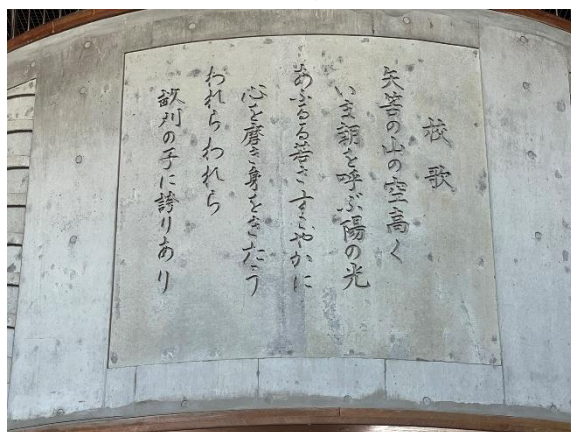 校歌
矢筈の山の空高く
いま朝を呼ぶ陽の光
あふるる若さすこやかに
心を磨き身をきたう
われらわれら
畝刈の子に誇りあり